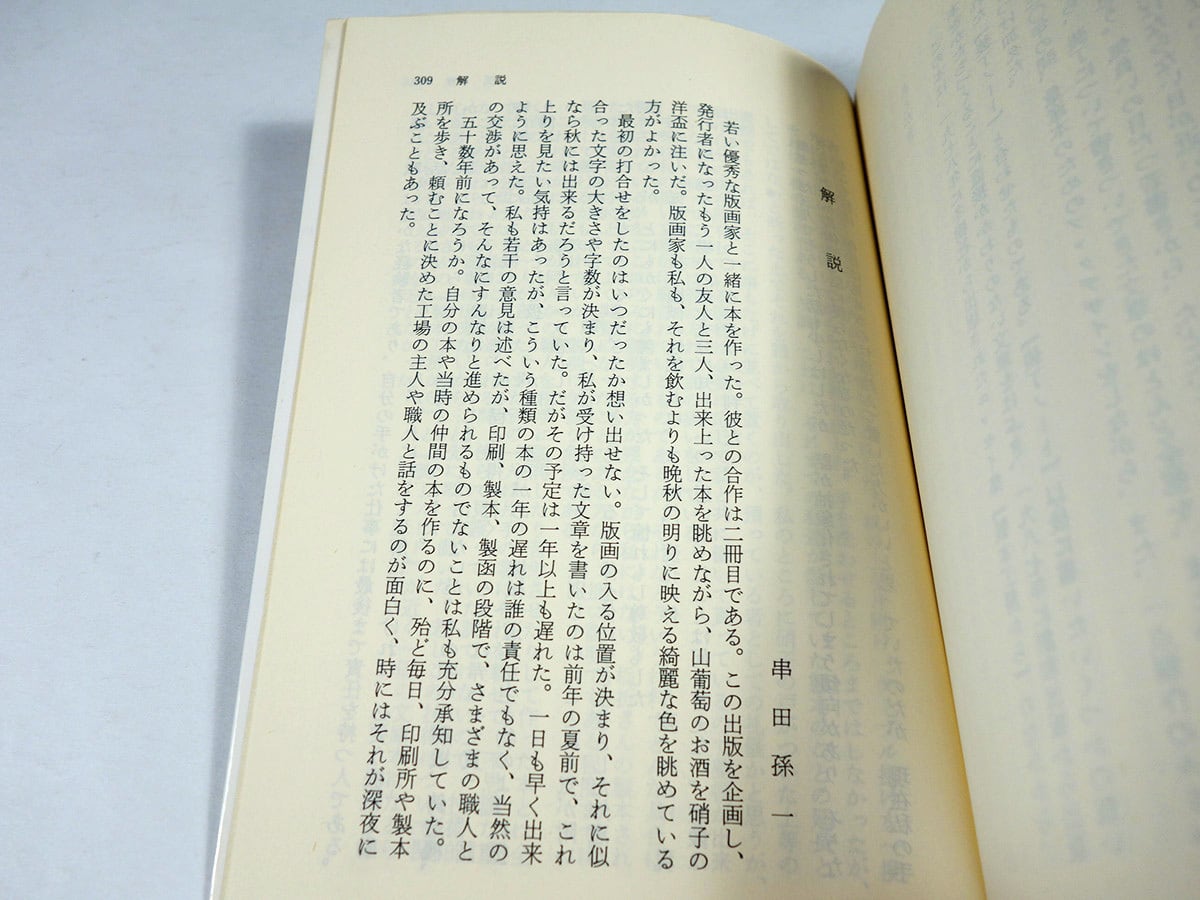 309 解説
解説
串田孫一
若い優秀な版画家と一緒に本を作った。彼との合作は二冊目である。この出版を企画し、
発行者になったもう一人の友人と三人、出来上った本を眺めながら、山葡萄のお酒を硝子の
洋盃に注いだ。版画家も私も、それを飲むよりも晩秋の明りに映える綺麗な色を眺めている
方がよかった。
最初の打合せをしたのはいつだったか想い出せない。版画の入る位置が決まり、それに似
合った文字の大きさや字数が決まり、私が受け持った文章を書いたのは前年の夏前で、これ
なら秋には出来るだろうと言っていた。だがその予定は一年以上も遅れた。一日も早く出来
上りを見たい気持はあったが、こういう種類の本の一年の遅れは誰の責任でもなく、当然の
ように思えた。私も若干の意見は述べたが、印刷、製本、製函の段階で、さまざまの職人と
の交渉があって、そんなにすんなりと進められるものでないことは私も充分承知していた。
五十数年前になろうか。自分の本や当時の仲間の本を作るのに、殆ど毎日、印刷所や製本
所を歩き、頼むことに決めた工場の主人や職人と話をするのが面白く、時にはそれが深夜に
及ぶこともあった。